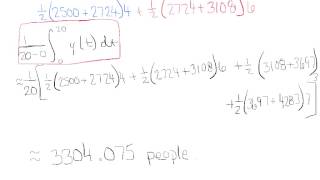 ½(2500+2724)4 + ½(2724+3108)6
1/(20-0) ∫₀²⁰ y(t) dt
1/20[½(2500+2724)4 + ½(2724+3108)6 + ½(3108+3697)3
+½(3697+4283)7]
≈ 3304.075 people.